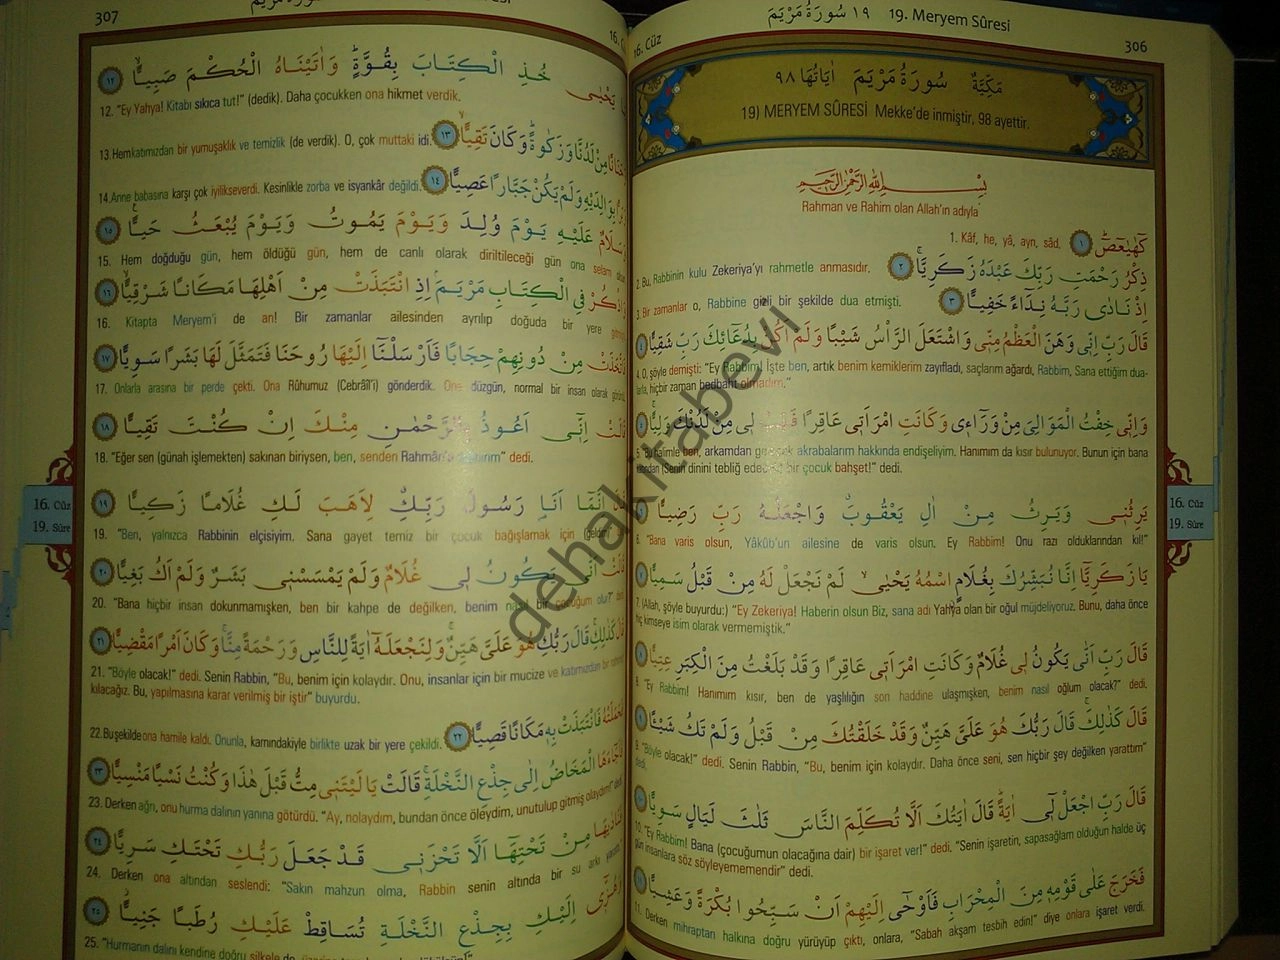 ١٩ سُورَةُ مَرْيَمَ 19. Meryem Sûresi
306
16. Cüz
مَكِّيَّةٌ سُورَةُ مَرْيَمَ اٰيَاتُهَا ٩٨
19) MERYEM SÛRESİ Mekke'de inmiştir, 98 ayettir.
بِسْمِ اللّٰهِ الرَّحْمٰنِ الرَّحِيمِ
Rahman ve Rahim olan Allah'ın adıyla
كٓهٰيٰعٓصٓ ١ 1. Kâf, he, yâ, ayn, sâd.
ذِكْرُ رَحْمَتِ رَبِّكَ عَبْدَهُ زَكَرِيَّا ٢ 2. Bu, Rabbinin kulu Zekeriya'yı rahmetle anmasıdır.
اِذْ نَادٰى رَبَّهُ نِدَاءً خَفِيًّا ٣ 3. Bir zamanlar o, Rabbine gizli bir şekilde dua etmişti.
قَالَ رَبِّ اِنِّى وَهَنَ الْعَظْمُ مِنِّى وَاشْتَعَلَ الرَّأْسُ شَيْبًا وَلَمْ اَكُنْ بِدُعَائِكَ رَبِّ شَقِيًّا ٤
4. O, şöyle demişti: "Ey Rabbim! İşte ben, artık benim kemiklerim zayıfladı, saçlarım ağardı, Rabbim, Sana ettiğim dua-
larla, hiçbir zaman bedbaht olmadım."
وَاِنِّى خِفْتُ الْمَوَالِىَ مِنْ وَرَاءِى وَكَانَتِ امْرَاَتِى عَاقِرًا فَهَبْ لِى مِنْ لَدُنْكَ وَلِيًّا ٥
arkamdan gelecek akrabalarım hakkında endişeliyim. Hanımım da kısır bulunuyor. Bunun için bana
(Senin dinini tebliğ edecek) bir çocuk bahşet!" dedi.
يَرِثُنِى وَيَرِثُ مِنْ اٰلِ يَعْقُوبَ وَاجْعَلْهُ رَبِّ رَضِيًّا ٦
6. "Bana varis olsun, Yâkûb'un ailesine de varis olsun. Ey Rabbim! Onu razı olduklarından kıl!"
يَا زَكَرِيَّا اِنَّا نُبَشِّرُكَ بِغُلَامٍ اسْمُهُ يَحْيٰى لَمْ نَجْعَلْ لَهُ مِنْ قَبْلُ سَمِيًّا ٧
7. (Allah, şöyle buyurdu:) "Ey Zekeriya! Haberin olsun Biz, sana adı Yahya olan bir oğul müjdeliyoruz. Bunu, daha önce
hiç kimseye isim olarak vermemiştik."
قَالَ رَبِّ اَنّٰى يَكُونُ لِى غُلَامٌ وَكَانَتِ امْرَاَتِى عَاقِرًا وَقَدْ بَلَغْتُ مِنَ الْكِبَرِ عِتِيًّا ٨
8. "Ey Rabbim! Hanımım kısır, ben de yaşlılığın son haddine ulaşmışken, benim nasıl oğlum olacak?" dedi.
قَالَ كَذٰلِكَ قَالَ رَبُّكَ هُوَ عَلَىَّ هَيِّنٌ وَقَدْ خَلَقْتُكَ مِنْ قَبْلُ وَلَمْ تَكُ شَيْئًا ٩
9. "Böyle olacak!" dedi. Senin Rabbin, "Bu, benim için kolaydır. Daha önce seni, sen hiçbir şey değilken yarattım"
dedi.
قَالَ رَبِّ اجْعَلْ لِى اٰيَةً قَالَ اٰيَتُكَ اَلَّا تُكَلِّمَ النَّاسَ ثَلٰثَ لَيَالٍ سَوِيًّا ١٠
10. "Ey Rabbim! Bana (çocuğumun olacağına dair) bir işaret ver!" dedi. "Senin işaretin, sapasağlam olduğun halde üç
gün insanlara söz söyleyememendir" dedi.
فَخَرَجَ عَلٰى قَوْمِهِ مِنَ الْمِحْرَابِ فَاَوْحٰى اِلَيْهِمْ اَنْ سَبِّحُوا بُكْرَةً وَعَشِيًّا ١١
11. Derken mihraptan halkına doğru yürüyüp çıktı, onlara, "Sabah akşam tesbih edin!" diye onlara işaret verdi.
16. Cüz
19. Sûre
307
يَا يَحْيٰى خُذِ الْكِتَابَ بِقُوَّةٍ وَاٰتَيْنَاهُ الْحُكْمَ صَبِيًّا ١٢
12. "Ey Yahya! Kitabı sıkıca tut!" (dedik). Daha çocukken ona hikmet verdik.
وَحَنَانًا مِنْ لَدُنَّا وَزَكٰوةً وَكَانَ تَقِيًّا ١٣ 13. Hem katımızdan bir yumuşaklık ve temizlik (de verdik). O, çok muttaki idi.
وَبَرًّا بِوَالِدَيْهِ وَلَمْ يَكُنْ جَبَّارًا عَصِيًّا ١٤ 14. Anne babasına karşı çok iyilikseverdi. Kesinlikle zorba ve isyankâr değildi.
وَسَلَامٌ عَلَيْهِ يَوْمَ وُلِدَ وَيَوْمَ يَمُوتُ وَيَوْمَ يُبْعَثُ حَيًّا ١٥
15. Hem doğduğu gün, hem öldüğü gün, hem de canlı olarak diriltileceği gün ona selam
وَاذْكُرْ فِى الْكِتَابِ مَرْيَمَ اِذِ انْتَبَذَتْ مِنْ اَهْلِهَا مَكَانًا شَرْقِيًّا ١٦
16. Kitapta Meryem'i de an! Bir zamanlar ailesinden ayrılıp doğuda bir yere
فَاتَّخَذَتْ مِنْ دُونِهِمْ حِجَابًا فَاَرْسَلْنَا اِلَيْهَا رُوحَنَا فَتَمَثَّلَ لَهَا بَشَرًا سَوِيًّا ١٧
17. Onlarla arasına bir perde çekti. Ona Rûhumuz (Cebrâîl'i) gönderdik. Ona düzgün, normal bir insan olarak
قَالَتْ اِنِّى اَعُوذُ بِالرَّحْمٰنِ مِنْكَ اِنْ كُنْتَ تَقِيًّا ١٨
18. "Eğer sen (günah işlemekten) sakınan biriysen, ben, senden Rahmân'a sığınırım" dedi.
قَالَ اِنَّمَا اَنَا رَسُولُ رَبِّكِ لِاَهَبَ لَكِ غُلَامًا زَكِيًّا ١٩
19. "Ben, yalnızca Rabbinin elçisiyim. Sana gayet temiz bir çocuk bağışlamak için (geldim)"
قَالَتْ اَنّٰى يَكُونُ لِى غُلَامٌ وَلَمْ يَمْسَسْنِى بَشَرٌ وَلَمْ اَكُ بَغِيًّا ٢٠
20. "Bana hiçbir insan dokunmamışken, ben bir kahpe de değilken, benim nasıl bir çocuğum olur?"
قَالَ كَذٰلِكِ قَالَ رَبُّكِ هُوَ عَلَىَّ هَيِّنٌ وَلِنَجْعَلَهُ اٰيَةً لِلنَّاسِ وَرَحْمَةً مِنَّا وَكَانَ اَمْرًا مَقْضِيًّا ٢١
21. "Böyle olacak!" dedi. Senin Rabbin, "Bu, benim için kolaydır. Onu, insanlar için bir mucize ve katımızdan bir
kılacağız. Bu, yapılmasına karar verilmiş bir iştir" buyurdu.
فَحَمَلَتْهُ فَانْتَبَذَتْ بِهِ مَكَانًا قَصِيًّا ٢٢ 22. Bu şekilde ona hamile kaldı. Onunla, karnındakiyle birlikte uzak bir yere çekildi.
فَاَجَاءَهَا الْمَخَاضُ اِلٰى جِذْعِ النَّخْلَةِ قَالَتْ يَا لَيْتَنِى مِتُّ قَبْلَ هٰذَا وَكُنْتُ نَسْيًا مَنْسِيًّا ٢٣
23. Derken ağrı, onu hurma dalının yanına götürdü. "Ay, nolaydım, bundan önce öleydim, unutulup gitmiş olaydım!"
فَنَادٰيهَا مِنْ تَحْتِهَا اَلَّا تَحْزَنِى قَدْ جَعَلَ رَبُّكِ تَحْتَكِ سَرِيًّا ٢٤
24. Derken ona altından seslendi: "Sakın mahzun olma, Rabbin senin altında bir su arkı
وَهُزِّى اِلَيْكِ بِجِذْعِ النَّخْلَةِ تُسَاقِطْ عَلَيْكِ رُطَبًا جَنِيًّا ٢٥
25. "Hurmanın dalını kendine doğru silkele de,
16. Cüz
19. Sûre
dehakitabevi